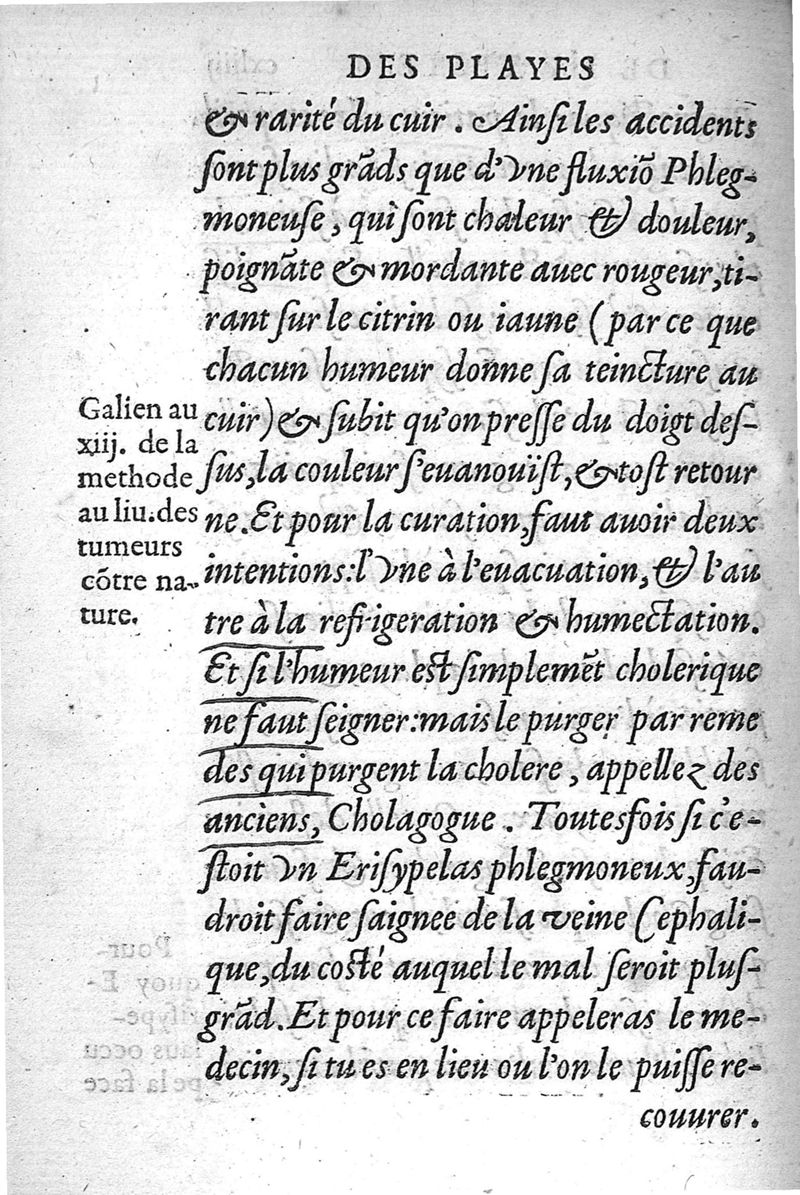 DES PLAYES
& rarité du cuir. Ainſi les accidents
ſont plus grãds que d'vne fluxiõ Phleg-
moneuſe, qui ſont chaleur & douleur,
poignãte & mordante auec rougeur, ti-
rant ſur le citrin ou iaune (par ce que
chacun humeur donne ſa teincture au
cuir) & ſubit qu'on preſſe du doigt deſ-
ſus, la couleur s'euanouïſt, & toſt retour
ne. Et pour la curation, faut auoir deux
intentions: l'vne à l'euacuation, & l'au
tre à la refrigeration & humectation.
Et ſi l'humeur eſt ſimplemẽt cholerique
ne faut ſeigner: mais le purger par reme
des qui purgent la cholere, appellez des
anciens, Cholagogue. Toutesfois ſi c'e-
ſtoit vn Eriſypelas phlegmoneux, fau-
droit faire ſaignee de la veine Cephali-
que, du coſté auquel le mal ſeroit pluſ-
grãd. Et pour ce faire appeleras le me-
decin, ſi tu es en lieu ou l'on le puiſſe re-
couurer.
Galien au
xiij. de la
methode
au liu. des
tumeurs
cõtre na-
ture.